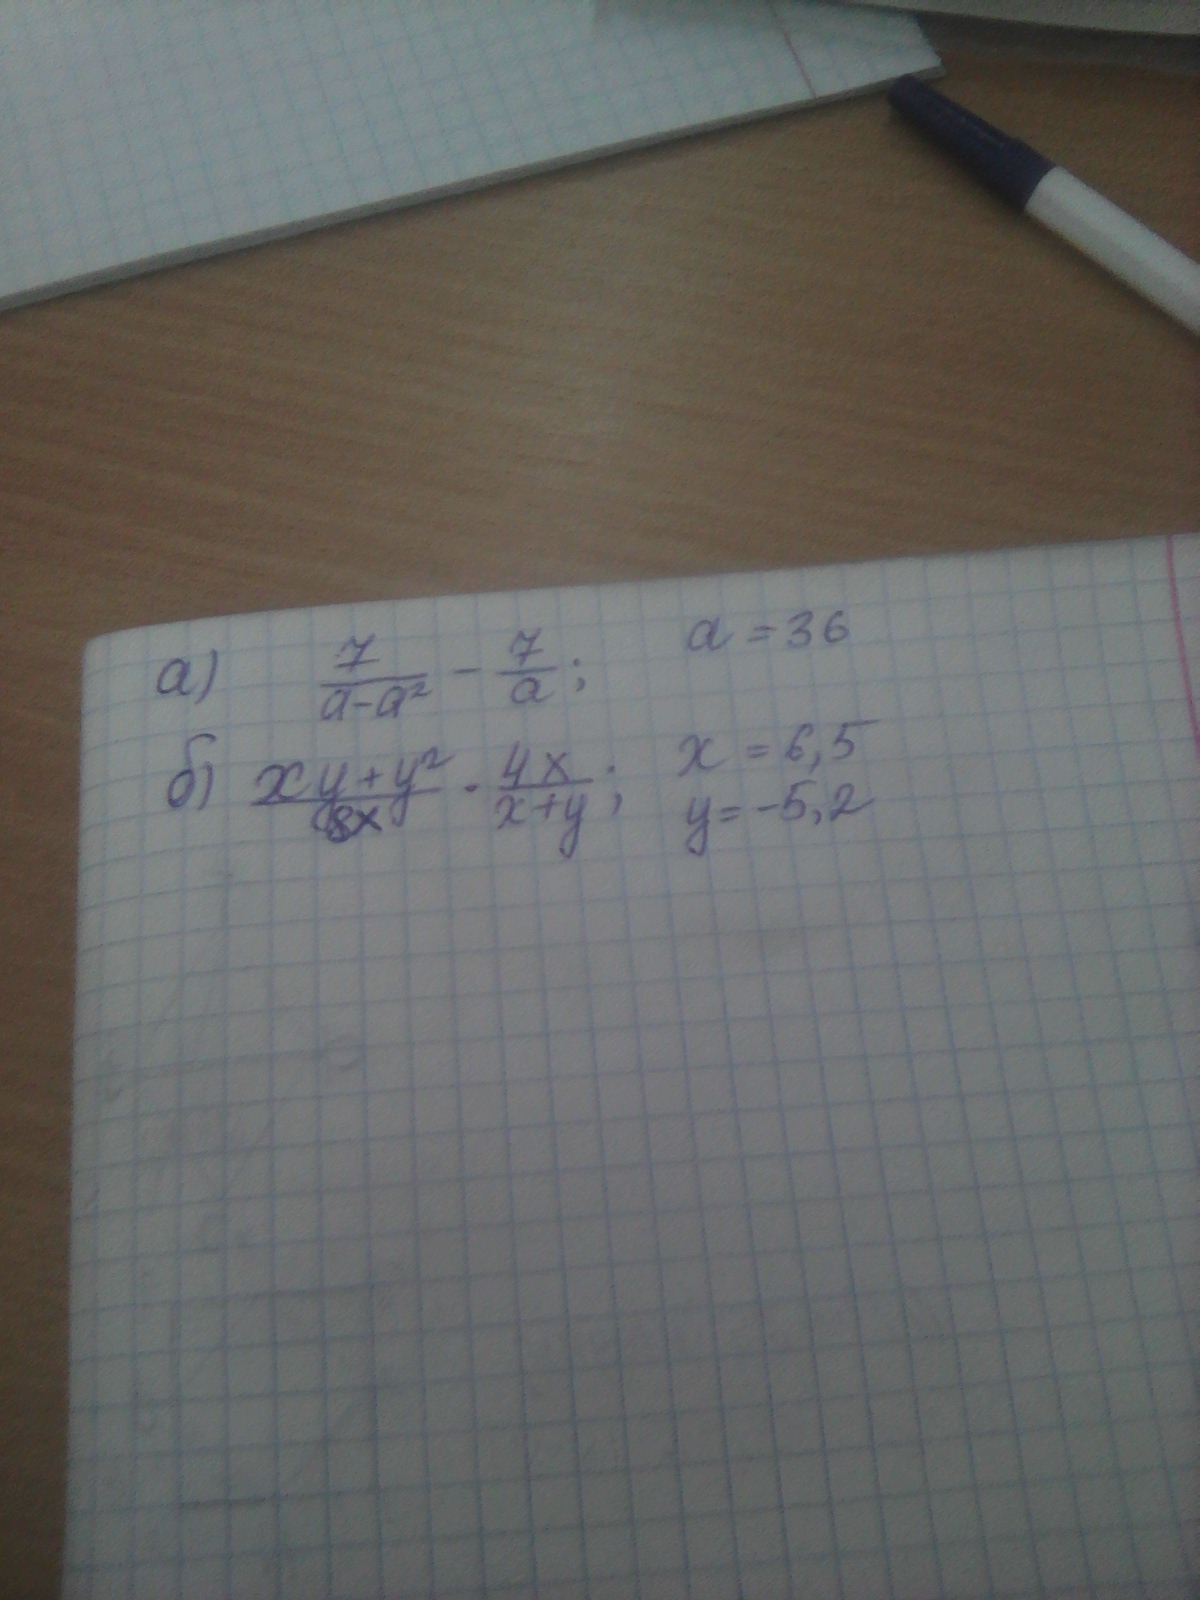 а) 7/(a-a²) - 7/a; a = 36
б) (xy+y²)/(8x) · 4x/(x+y); x = 6,5
y = -5,2